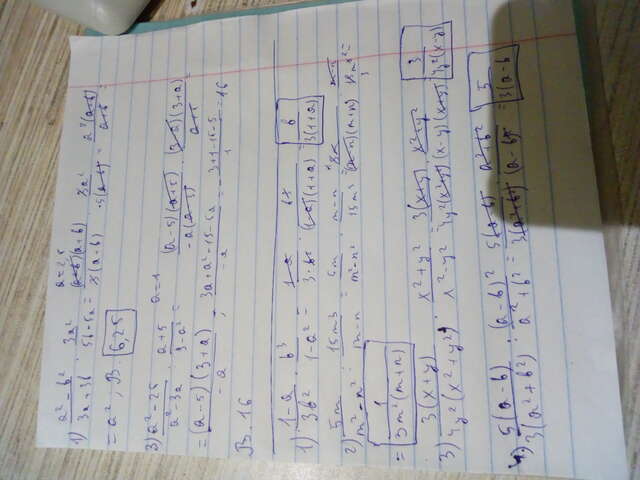 a = 2,5
1) (a² - b²)/(3a + 3b) · 3a²/(5b - 5a) = (a-b)(a+b)/3(a+b) · 3a²/5(a-b) = a²(a+b)/(a+b) =
= a²; В. 6,25
3) (a² - 25)/(a² - 3a) : (a + 5)/(9 - a²) = a = 1 (a-5)(a+5)/-a(a-3) · (3-a)(3+a)/(a+5) =
= (a-5)(3+a)/-a = (3a + a² - 15 - 5a)/-a = -(3+1-15-5)/1 = 16
В. 16
1) (1-a)/3b² · b³/(1-a²) = (1-a)/3·b² · b³/(1-a)(1+a) = b/3(1+a)
2) 5m/(m² - n²) : 15m³/(m-n) = 5m/(m²-n²) · (m-n)/15m³ = 5m/(m-n)(m+n) · (m-n)/15m³ =
= 1/3m²(m+n)
3) 3(x+y)/4y²(x²+y²) · (x²+y²)/(x²-y²) = 3(x+y)/4y²(x²+y²) · (x²+y²)/(x-y)(x+y) = 3/4y²(x-y)
4) 5(a-b)/3(a²+b²) : (a-b)²/(a²+b²) = 5(a-b)/3(a²+b²) · (a²+b²)/(a-b)² = 5/3(a-b